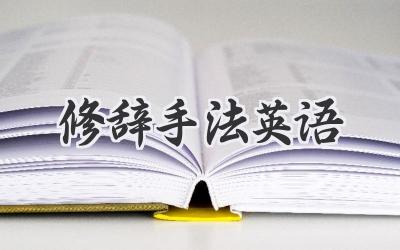 修辞手法英语